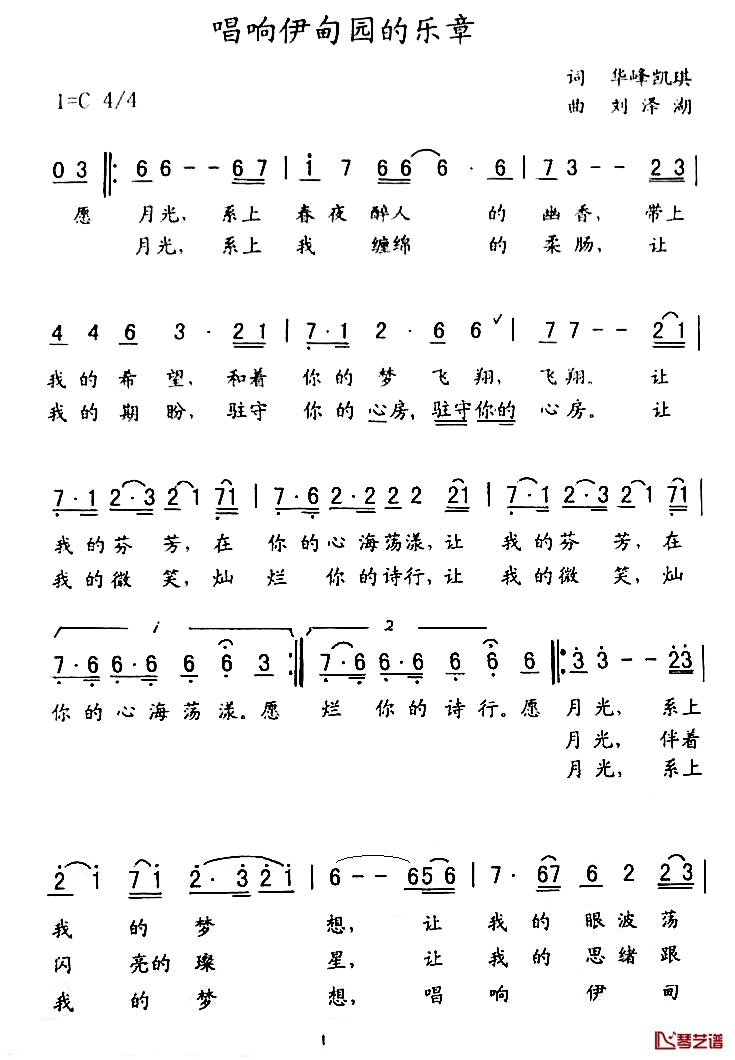 唱响伊甸园的乐章
词 华峰凯琪
1=C 4/4
曲 刘泽湖
0 3 6 6 - - 6 7 i 7 6 6 6 · 6 7 3 - - 2 3
愿 月光, 系上 春夜 醉人 的 幽香, 带上
月光, 系上 我 缠绵 的 柔肠, 让
4 4 6 3 · 2 1 7 · 1 2 · 6 6 7 7 - - 2 1
我的希望, 和着 你的梦飞翔, 飞翔。 让
我的期盼, 驻守 你的心房, 驻守你的 心房。 让
7 · 1 2 · 3 2 1 7 1 7 · 6 2 · 2 2 2 2 1 7 · 1 2 · 3 2 1 7 1
我的芬芳, 在 你的心海荡漾, 让 我的芬芳, 在
我的微笑, 灿 烂你的诗行, 让 我的微笑, 灿
1 2
7 · 6 6 · 6 6 6 3 7 · 6 6 · 6 6 6 6 3 3 - - 2 3
你的心海荡漾。愿 烂你的诗行。愿 月光, 系上
月光, 伴着
月光, 系上
2 i 7 i 2 · 3 2 i 6 - - 6 5 6 7 · 6 7 6 2 2 3
我 的梦 想, 让 我的眼波荡
闪 亮的璨 星, 让 我的思绪跟
我 的梦 想, 唱 响 伊 甸
1
琴艺谱